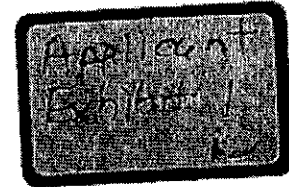 Applicant
Exhibit 1